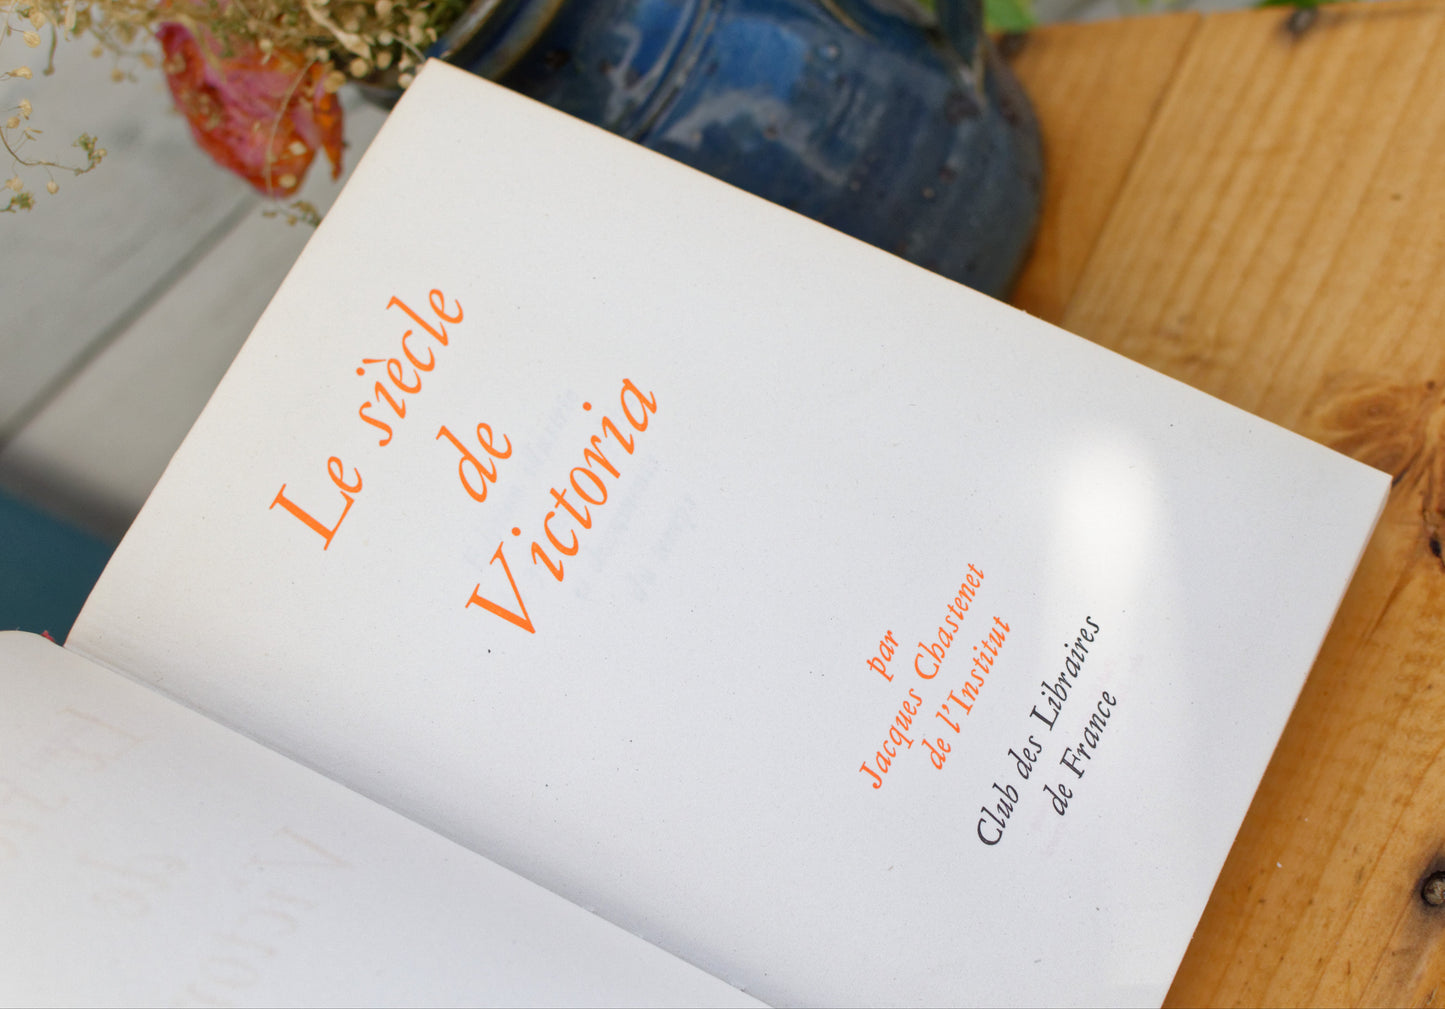 Le siècle
de
Victoria
par
Jacques Chastenet
de l'Institut
Club des Libraires
de France